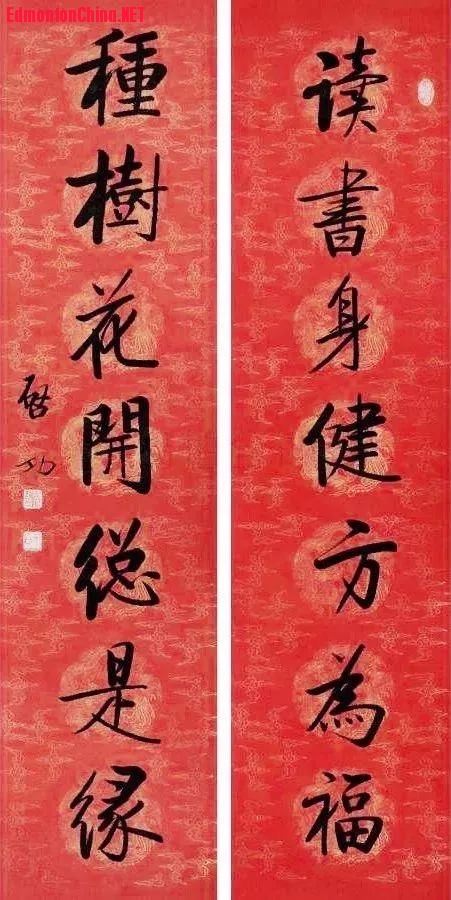 EdmontonChina.NET
读書身健方為福
種樹花開総是缘
啓功